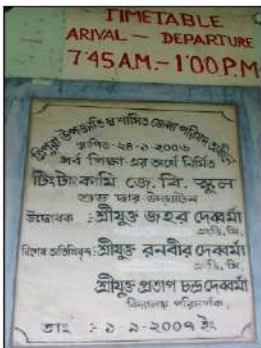 TIMETABLE
ARIVAL — DEPARTURE
7'45 A.M. – 1'00 P.M
ত্রিপুরা উপজাতি স্বশাসিত জেলা পরিষদ
স্থাপিত - ২৪-১-২০০৬
সর্ব শিক্ষা এর অর্থে নির্মিত
টিংটাং কামি জে. বি. স্কুল
শুভ দ্বার উদ্ঘাটন
উদ্বোধক : শ্রীযুক্ত জহর দেববর্মা
এ.ডি, সি,
বিশেষ অতিথিবৃন্দ : শ্রীযুক্ত রনবীর দেববর্মা
এ.ডি, সি,
শ্রীযুক্ত প্রতাপ চন্দ্র দেববর্মা
বিদ্যালয় পরিদর্শক,
তাং :- ১-৯-২০০৭ ইং